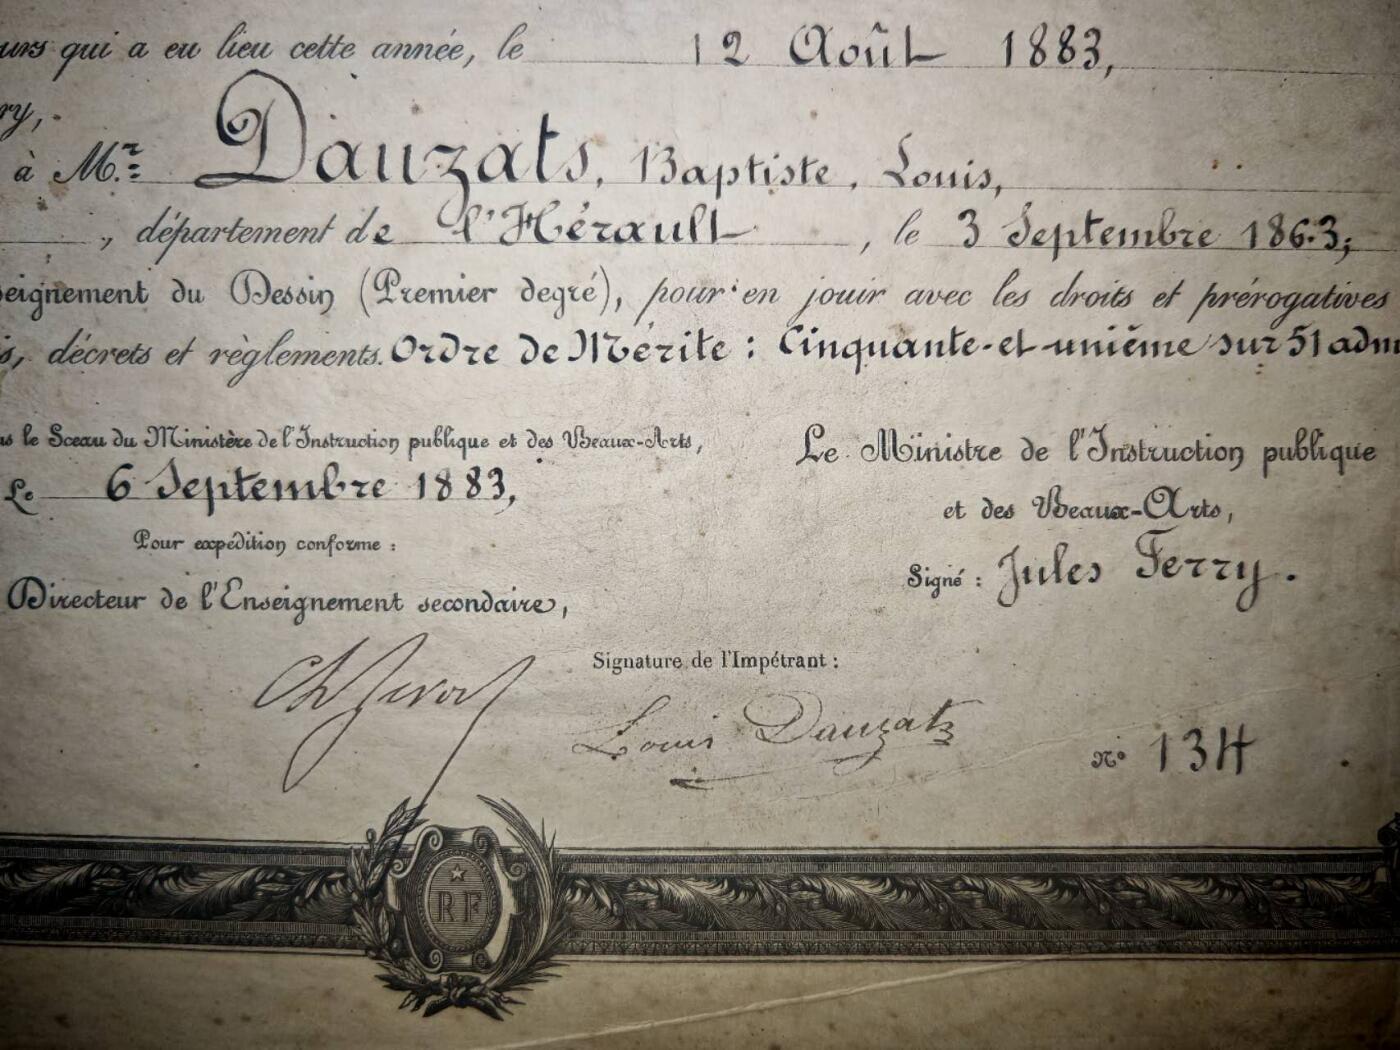 urs qui a eu lieu cette année, le 12 Août 1883,
ry,
à Mr. Dauzats, Baptiste, Louis,
, département de l'Hérault, le 3 Septembre 1863;
seignement du Dessin (Premier degré), pour en jouir avec les droits et prérogatives
s, décrets et règlements. Ordre de Mérite : Cinquante-et-unième sur 51 adm
us le Sceau du Ministère de l'Instruction publique et des Beaux-Arts,
Le 6 Septembre 1883,
Pour expédition conforme :
Directeur de l'Enseignement secondaire,
Le Ministre de l'Instruction publique
et des Beaux-Arts,
Signé : Jules Ferry.
Signature de l'Impétrant :
Louis Dauzats
No 134
RF